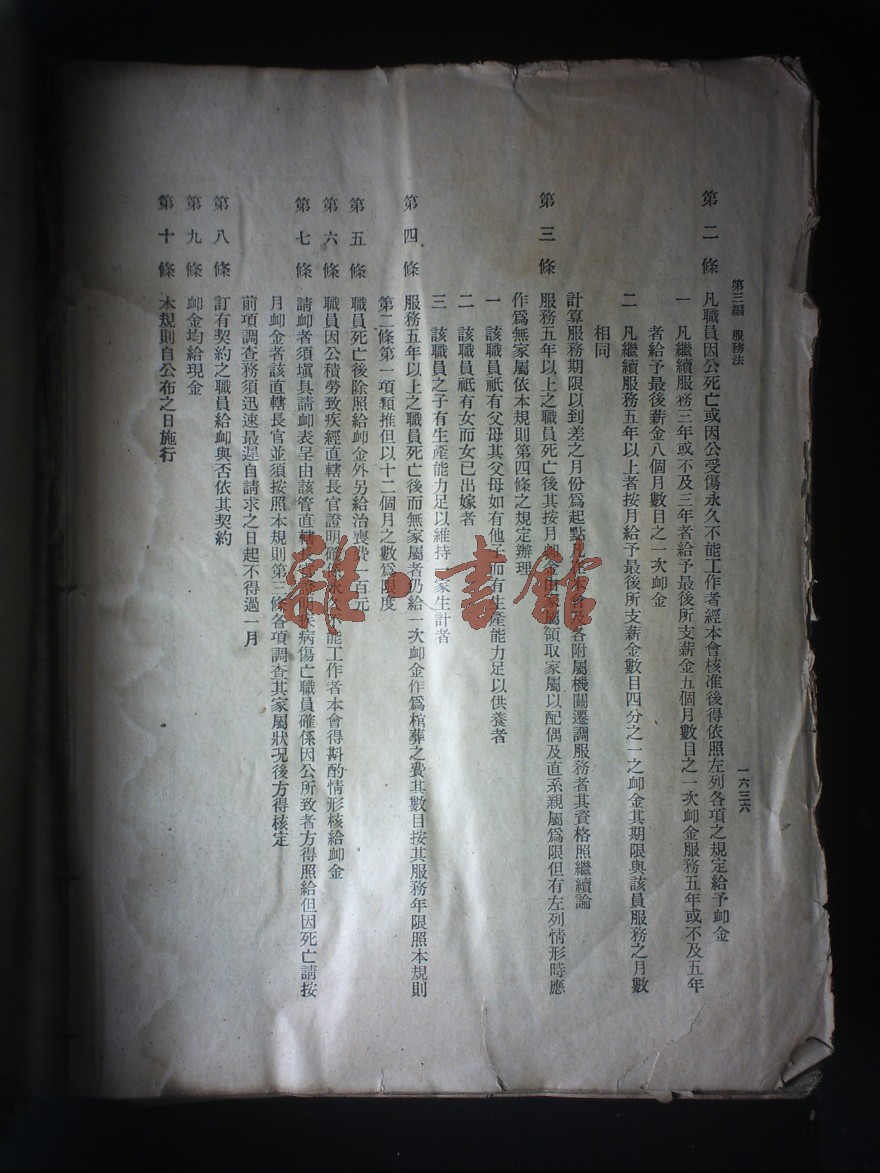 第三編　服務法
一六三六
第二條　凡職員因公死亡或因公受傷永久不能工作者經本會核准後得依照左列各項之規定給予卹金
一　凡繼續服務三年或不及三年者給予最後所支薪金五個月數目之一次卹金服務五年或不及五年
者給予最後薪金八個月數目之一次卹金
二　凡繼續服務五年以上者按月給予最後所支薪金數目四分之一之卹金其期限與該員服務之月數
相同
計算服務期限以到差之月份爲起點凡在本會及各附屬機關遷調服務者其資格照繼續論
第三條　服務五年以上之職員死亡後其按月卹金由家屬領取家屬以配偶及直系親屬爲限但有左列情形時應
作爲無家屬依本規則第四條之規定辦理
一　該職員祇有父母其父母如有他子而有生產能力足以供養者
二　該職員祇有女而女已出嫁者
三　該職員之子有生產能力足以維持一家生計者
第四條　服務五年以上之職員死亡後而無家屬者仍給一次卹金作爲棺葬之費其數目按其服務年限照本規則
第二條第一項類推但以十二個月之數爲限度
第五條　職員死亡後除照給卹金外另給治喪費一百元
第六條　職員因公積勞致疾經直轄長官證明確係永久不能工作者本會得斟酌情形核給卹金
第七條　請卹者須塡具請卹表呈由該管直轄長官證明疾病傷亡職員確係因公所致者方得照給但因死亡請按
月卹金者該直轄長官並須按照本規則第三條各項調查其家屬狀况後方得核定
前項調查務須迅速最遲自請求之日起不得過一月
第八條　訂有契約之職員給卹與否依其契約
第九條　卹金均給現金
第十條　本規則自公布之日施行
雜·書館